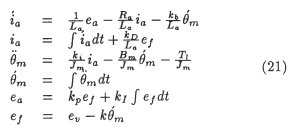 i̇_a = \frac{1}{L_a} e_a − \frac{R_a}{L_a} i_a − \frac{k_b}{L_a} θ̇_m
i_a = ∫ i̇_a dt + \frac{k_D}{L_a} e_f
θ̈_m = \frac{k_i}{J_m} i_a − \frac{B_m}{J_m} θ̇_m − \frac{T_l}{J_m}
θ̇_m = ∫ θ̈_m dt
e_a = k_p e_f + k_I ∫ e_f dt
e_f = e_v − k θ̇_m
(21)